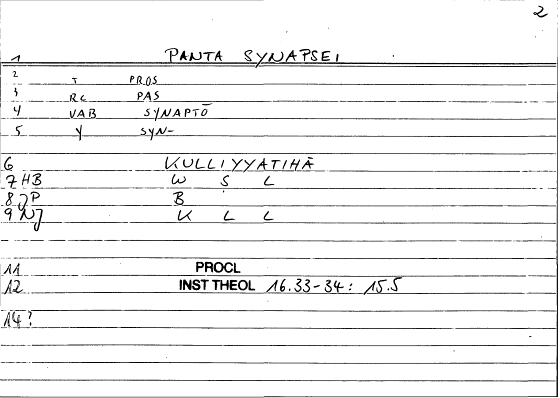 2
1 PANTA SYNAPSEI
2 T PROS
3 RC PAS
4 VAB SYNAPTŌ
5 Y SYN-
6 KULLIYYATIHĀ
7 HB W S L
8 JP B
9 NJ K L L
11 PROCL
12 INST THEOL 16.33-34: 15.5
14?